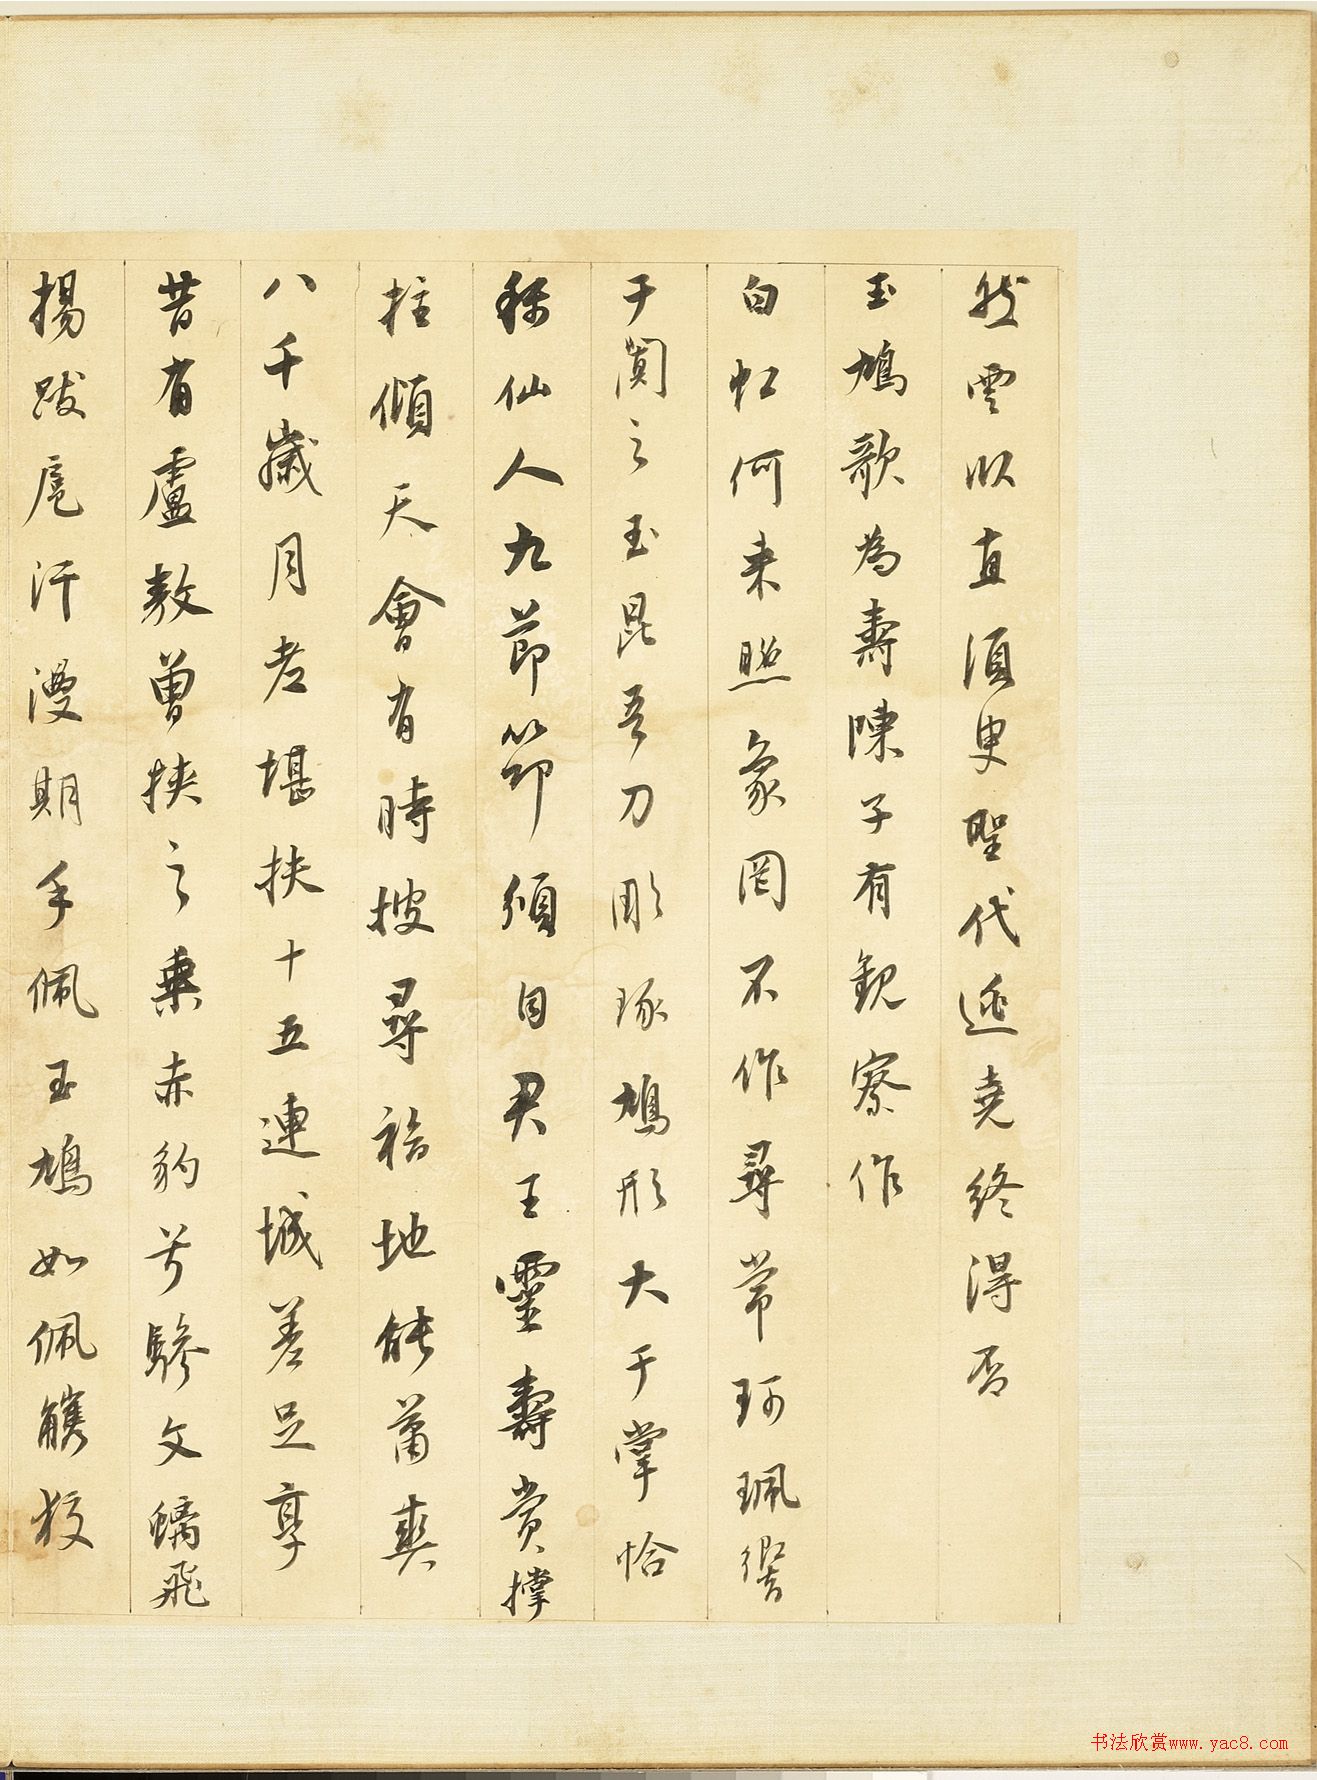 然雲臥直須臾聖代逃堯終得否
玉鳩歌為壽陳子有觀察作
白虹何來照象罔不作尋常珂珮響
于闐之玉昆吾刀彫琢鳩形大于掌恰
稱仙人九節筇傾自君王靈壽賞撑
拄傾天會有時披尋福地能蕭爽
八千歲月老堪扶十五連城差足享
昔有盧敖曾挾之乘赤豹兮驂文螭飛
揚跋扈汗漫期手佩玉鳩如佩觿校
书法欣赏www.yac8.com